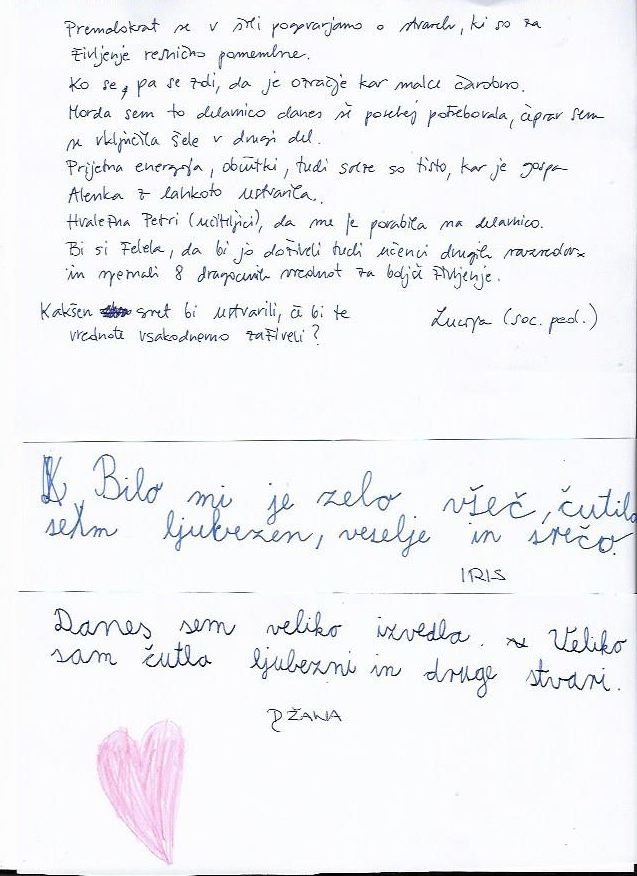 Premalokrat se v šoli pogovarjamo o stvareh, ki so za
življenje resnično pomembne.
Ko se, pa se zdi, da je ozračje kar malce čarobno.
Morda sem to delavnico danes še posebej potrebovala, čeprav sem
se vključila šele v drugi del.
Prijetna energija, občutki, tudi solze so tisto, kar je gospa
Alenka z lahkoto ustvarila.
Hvaležna Petri (učiteljici), da me je povabila na delavnico.
Bi si želela, da bi jo doživeli tudi učenci drugih razredov
in spoznali 8 dragocenih vrednot za boljše življenje.
Kakšen svet bi ustvarili, če bi te
vrednote vsakodnevno zaživeli?
Lucija (soc. ped.)
Bilo mi je zelo všeč, čutila
sem ljubezen, veselje in srečo.
IRIS
Danes sem veliko izvedla. Veliko
sam čutla ljubezni in druge stvari.
DŽANA